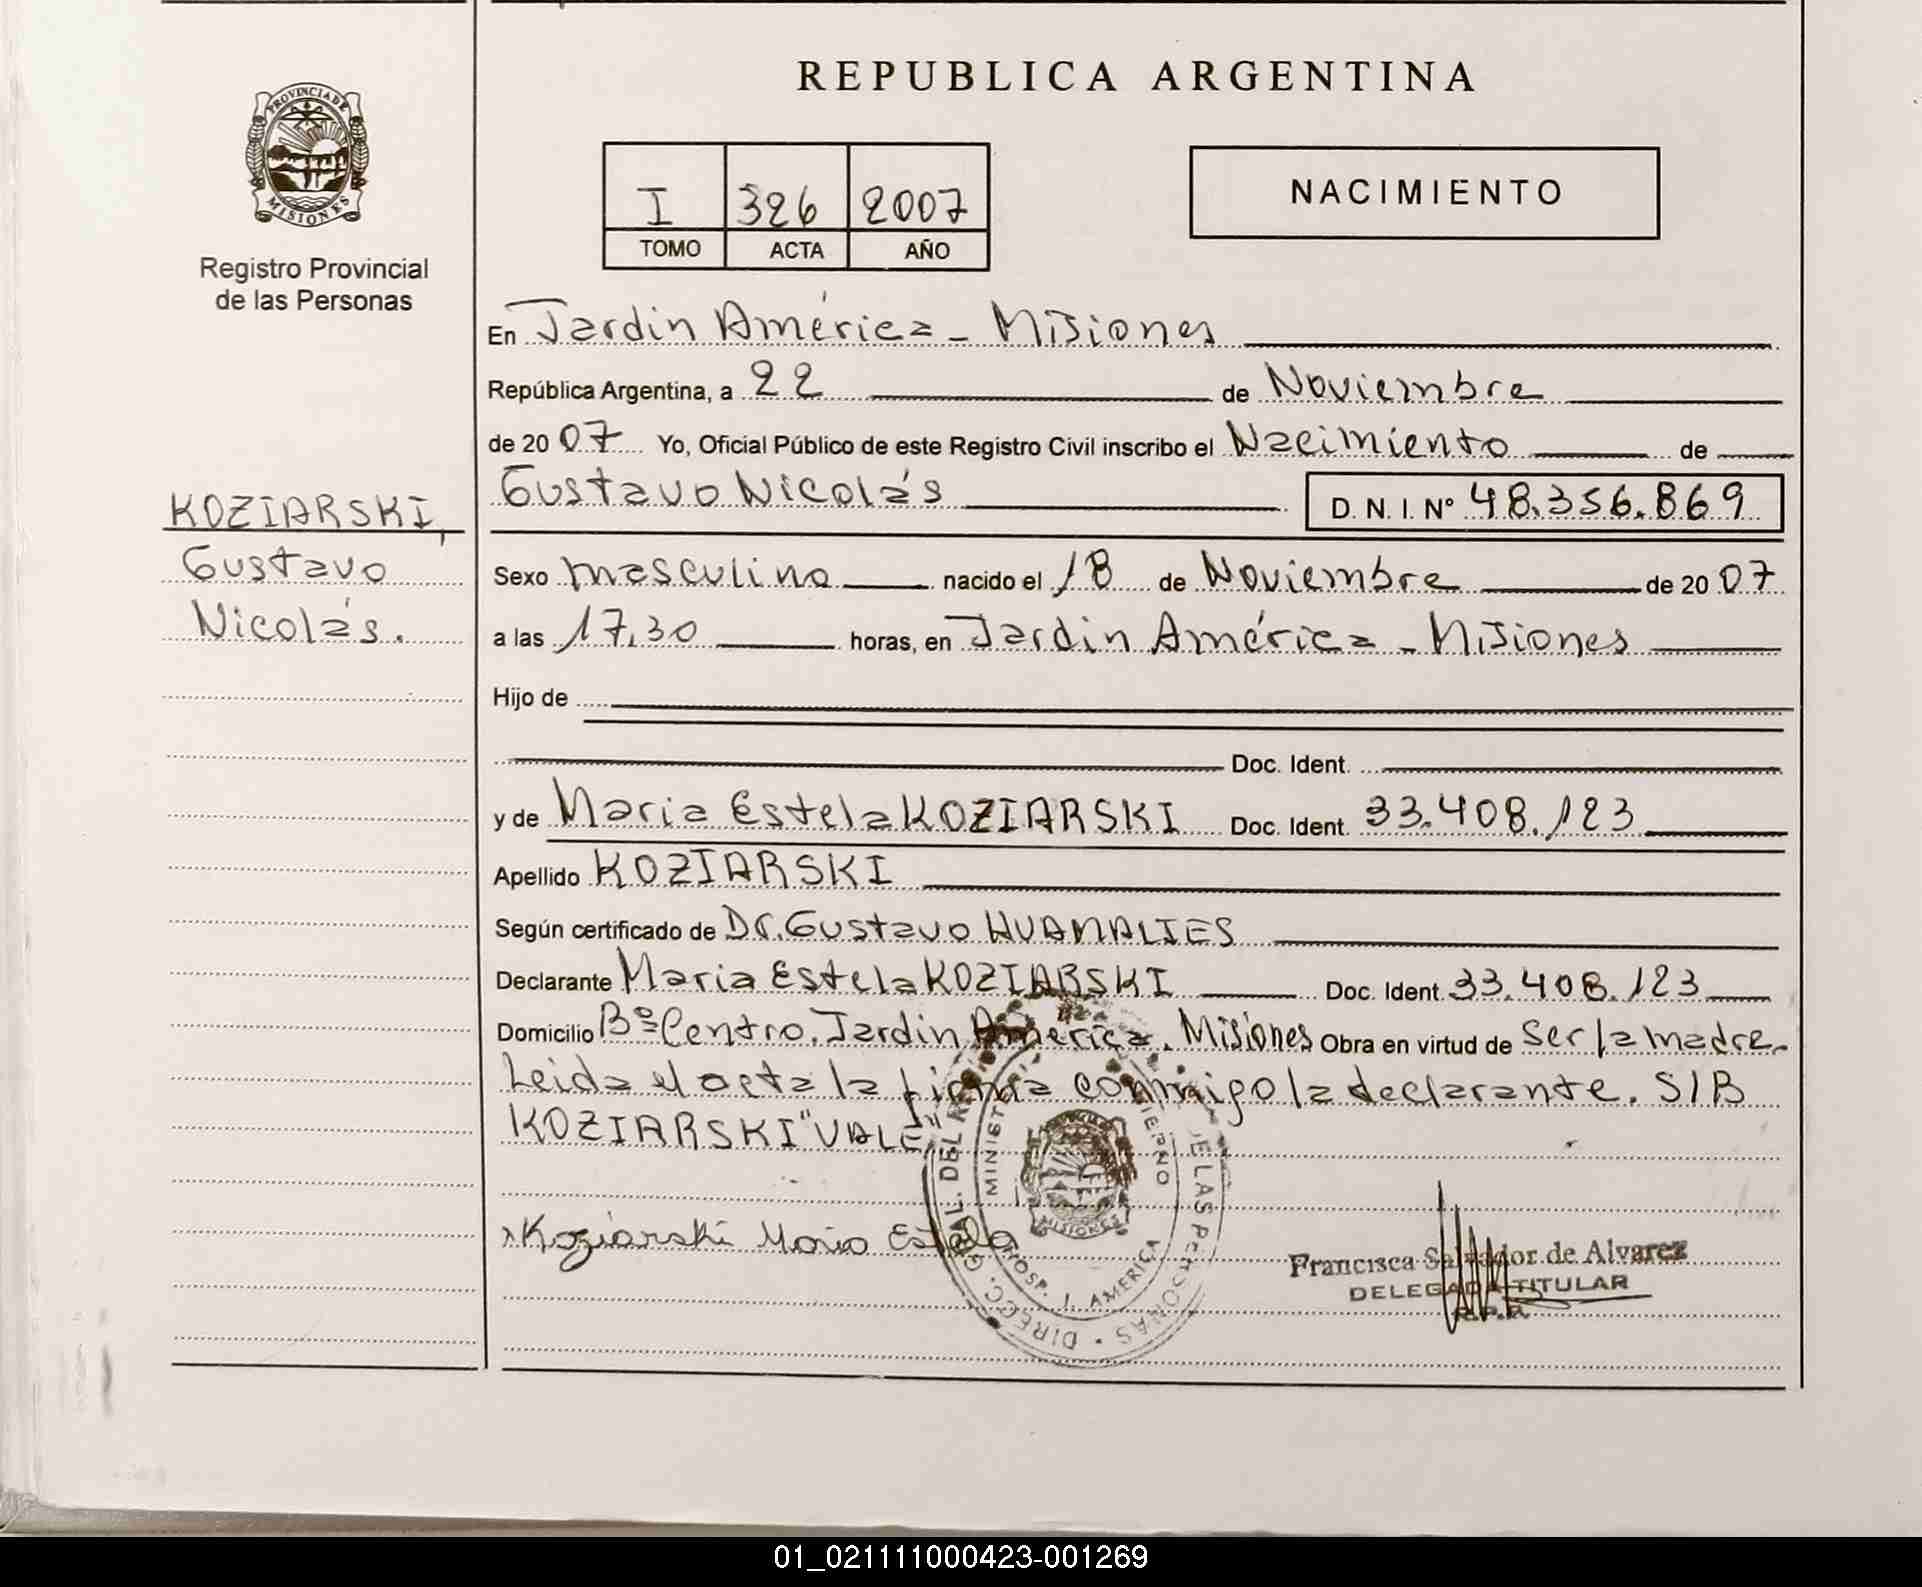 REPUBLICA ARGENTINA
PROVINCIA DE
MISIONES
Registro Provincial
de las Personas
I 326 2007
TOMO ACTA AÑO
NACIMIENTO
En Jardin América - Misiones
República Argentina, a 22 de Noviembre
de 20 07 Yo, Oficial Público de este Registro Civil inscribo el Nacimiento de
Gustavo Nicolás D. N. I. Nº 48.356.869
KOZIARSKI,
Gustavo
Nicolás.
Sexo masculino nacido el 18 de Noviembre de 20 07
a las 17,30 horas, en Jardin América - Misiones
Hijo de
Doc. Ident.
y de Maria Estela KOZIARSKI Doc. Ident. 33.408.123
Apellido KOZIARSKI
Según certificado de Dr. Gustavo HUAMALIES
Declarante Maria Estela KOZIARSKI Doc. Ident. 33.408.123
Domicilio Bº Centro. Jardin América. Misiones Obra en virtud de Ser la madre.
Leida el acta la firma conmigo la declarante. S/B
KOZIARSKI "VALE"
Koziarski Maria Estela
DIRECC. GRAL. DEL DE LAS PERSONAS
MINISTE IERNO
MISIONES
HOSP. J. AMERICA
Francisca Salvador de Alvarez
DELEGADA TITULAR
R.P.P.
01_021111000423-001269